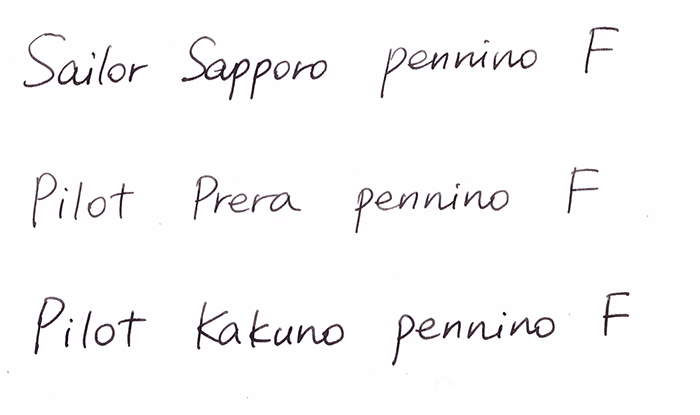 Sailor Sapporo pennino F
Pilot Prera pennino F
Pilot Kakuno pennino F